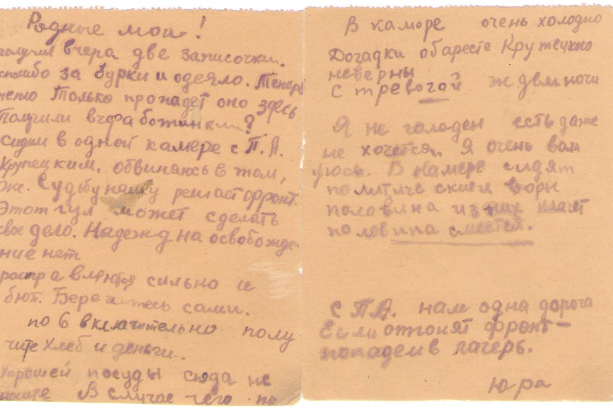 Родные мои!
получил вчера две записочки.
спасибо за бурки и одеяло. Теперь
только пропадет оно здесь
Получили вчера ботинки?
сидим в одной камере с П.А.
Крупецким. обвиняюсь в том,
Судьбу нашу решает фронт.
Этот гул может сделать
свое дело. Надежд на освобожде
ние нет
сильно и
бют. Берегитесь сами.
по 6 включительно полу
чите хлеб и деньги.
Хорошей посуды сюда не
В случае чего
В каморе очень холодно
Догадки об аресте Крупецкого
неверны
с тревогой ждем ночи
Я не голоден есть даже
не хочется. Я очень вол
уюсь. В камере сидят
политические и воры
половина из них
половина смеется.
с П.А. нам одна дорога
Если отгонят фронт—
попадем в лагерь.
Юра